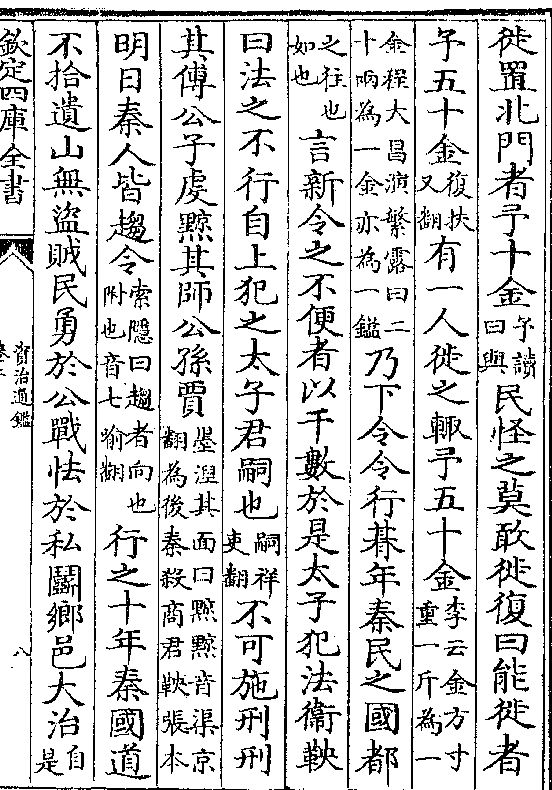 徙置北門者予十金予讀曰與民怪之莫敢徙復曰能徙者
予五十金復扶又翻有一人徙之輒予五十金李云金方寸重一斤為一
金程大昌演繁露曰二十兩為一金亦為一鎰乃下令令行朞年秦民之國都
之往也如也言新令之不便者以千數於是太子犯法衞鞅
曰法之不行自上犯之太子君嗣也嗣祥吏翻不可施刑刑
其傅公子虔黥其師公孫賈墨湼其面曰黥黥音渠京翻為後秦殺商君鞅張本
明日秦人皆趨令索隱曰趨者向也附也音七喻翻行之十年秦國道
不拾遺山無盜賊民勇於公戰怯於私鬭鄉邑大治自是
欽定四庫全書
資治通鑑
八